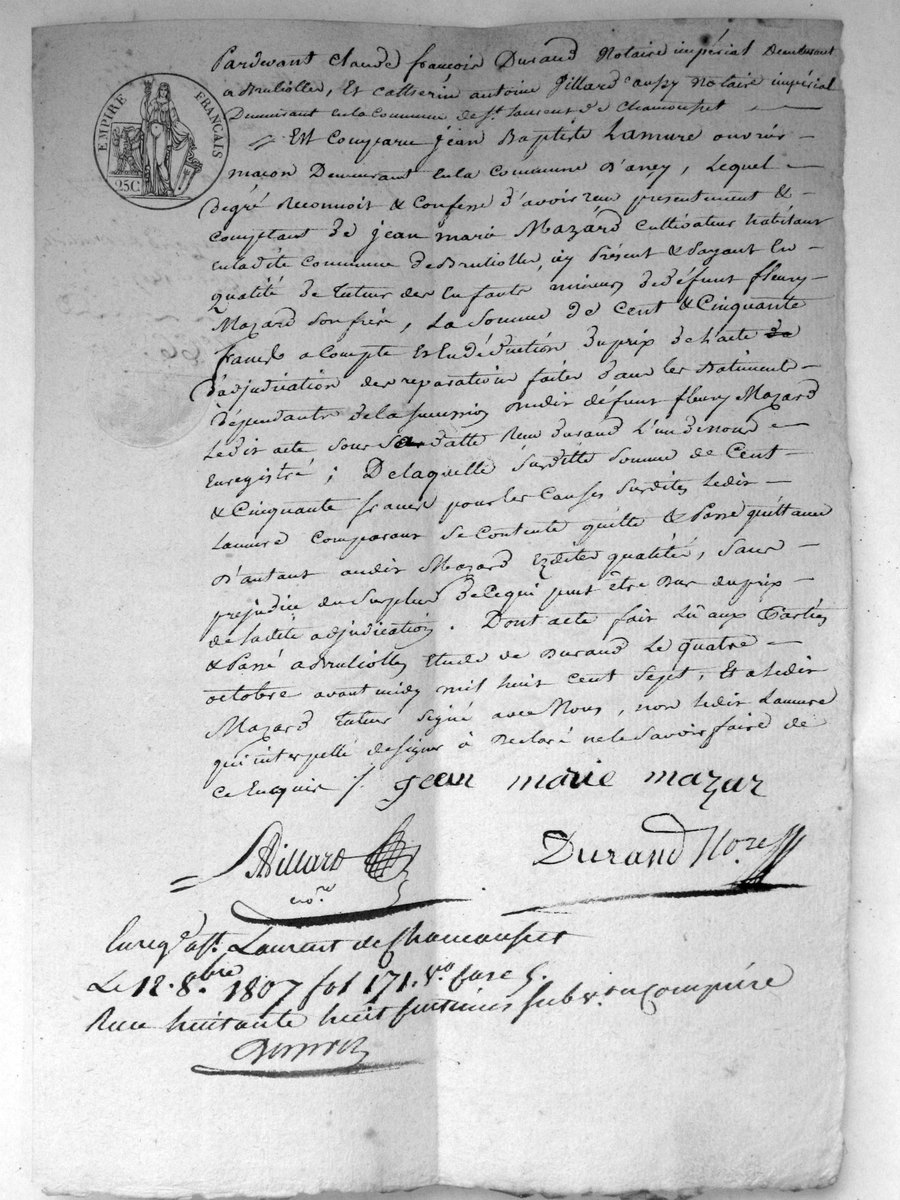 EMPIRE FRANÇAIS
25C
Pardevant Claude françois Durand Notaire impérial Demeurant
a Brulliolles, Et Catherin antoine Billard aussy Notaire impérial
Demeurant en la Commune de St. Laurent de Chamousset
Est Comparu jean Baptiste Lamure ouvrier
macon Demeurant en la Commune D'ancy, Lequel
Degré Reconnoit & Confesse D'avoir reçu presentement &
Comptant De jean marie Mazard Cultivateur habitant
en ladite Commune de Brulliolles, icy Présent & Payant En
qualité De tuteur des Enfants mineurs De défunt fleury
Mazard Son frère, La Somme De Cent & Cinquante
francs a Compte Et En Déduction Du prix De L'acte
D'adjudication des reparations faites Dans les Batiments
Dépendants de la succession dudit défunt fleury Mazard
Ledit acte Sous Sa Datte Reçu Durand L'un De Nous
Enregistré ; De laquelle Susditte Somme de Cent
& Cinquante francs pour les Causes Susdites Ledit
Lamure Comparant Se Contente quitte & Passe quittance
D'autant audit Mazard Ezdites qualités, Sans
prejudice du Surplus De ce qui peut être Du du prix
de Ladite adjudication. Dont acte fait Lû aux Parties
& Passé a Brulliolles Etude De Durand Le quatre
octobre avant midy mil huit Cent Sept, Et a Ledit
Mazard tuteur Signé avec Nous, non Ledit Lamure
qui interpellé de Signer à Declaré ne le Savoir faire de
Ce Enquis /.
jean marie mazar
Billard
no.re
Durand No.re
Enreg.é a St. Laurent de Chamousset
Le 12. 8.bre 1807 fol 171. v.o Case 5.
Reçu huitante huit Centimes Subv.on Comprise